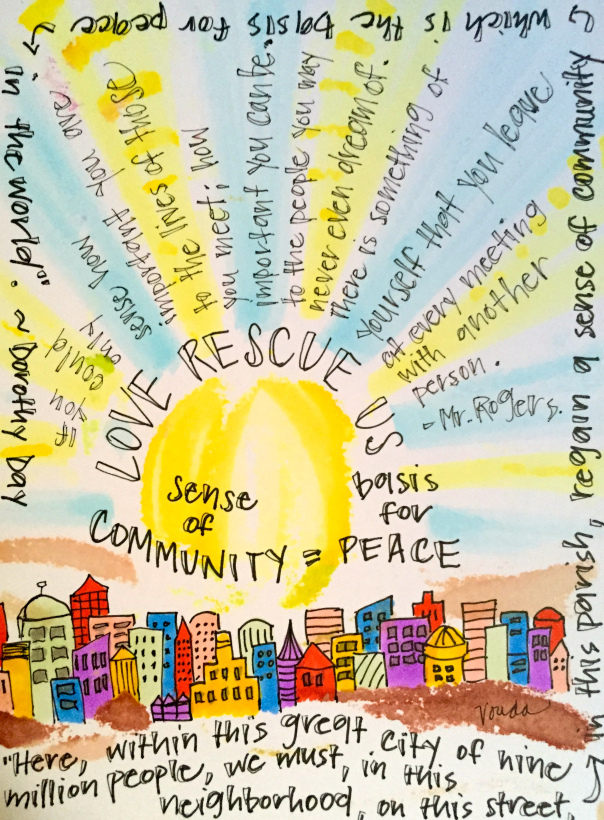 If you
could
only
sense how
important you are
to the lives of those
you meet; how
important you can be
to the people you may
never even dream of.
There is something of
yourself that you leave
at every meeting
with another
person.
- Mr. Rogers.
LOVE RESCUE US
sense
of
COMMUNITY = PEACE
basis
for
Vouda
"Here, within this great city of nine
million people, we must, in this
neighborhood, on this street,
in this parish, regain a sense of community
which is the basis for peace
in the world." ~ Dorothy Day